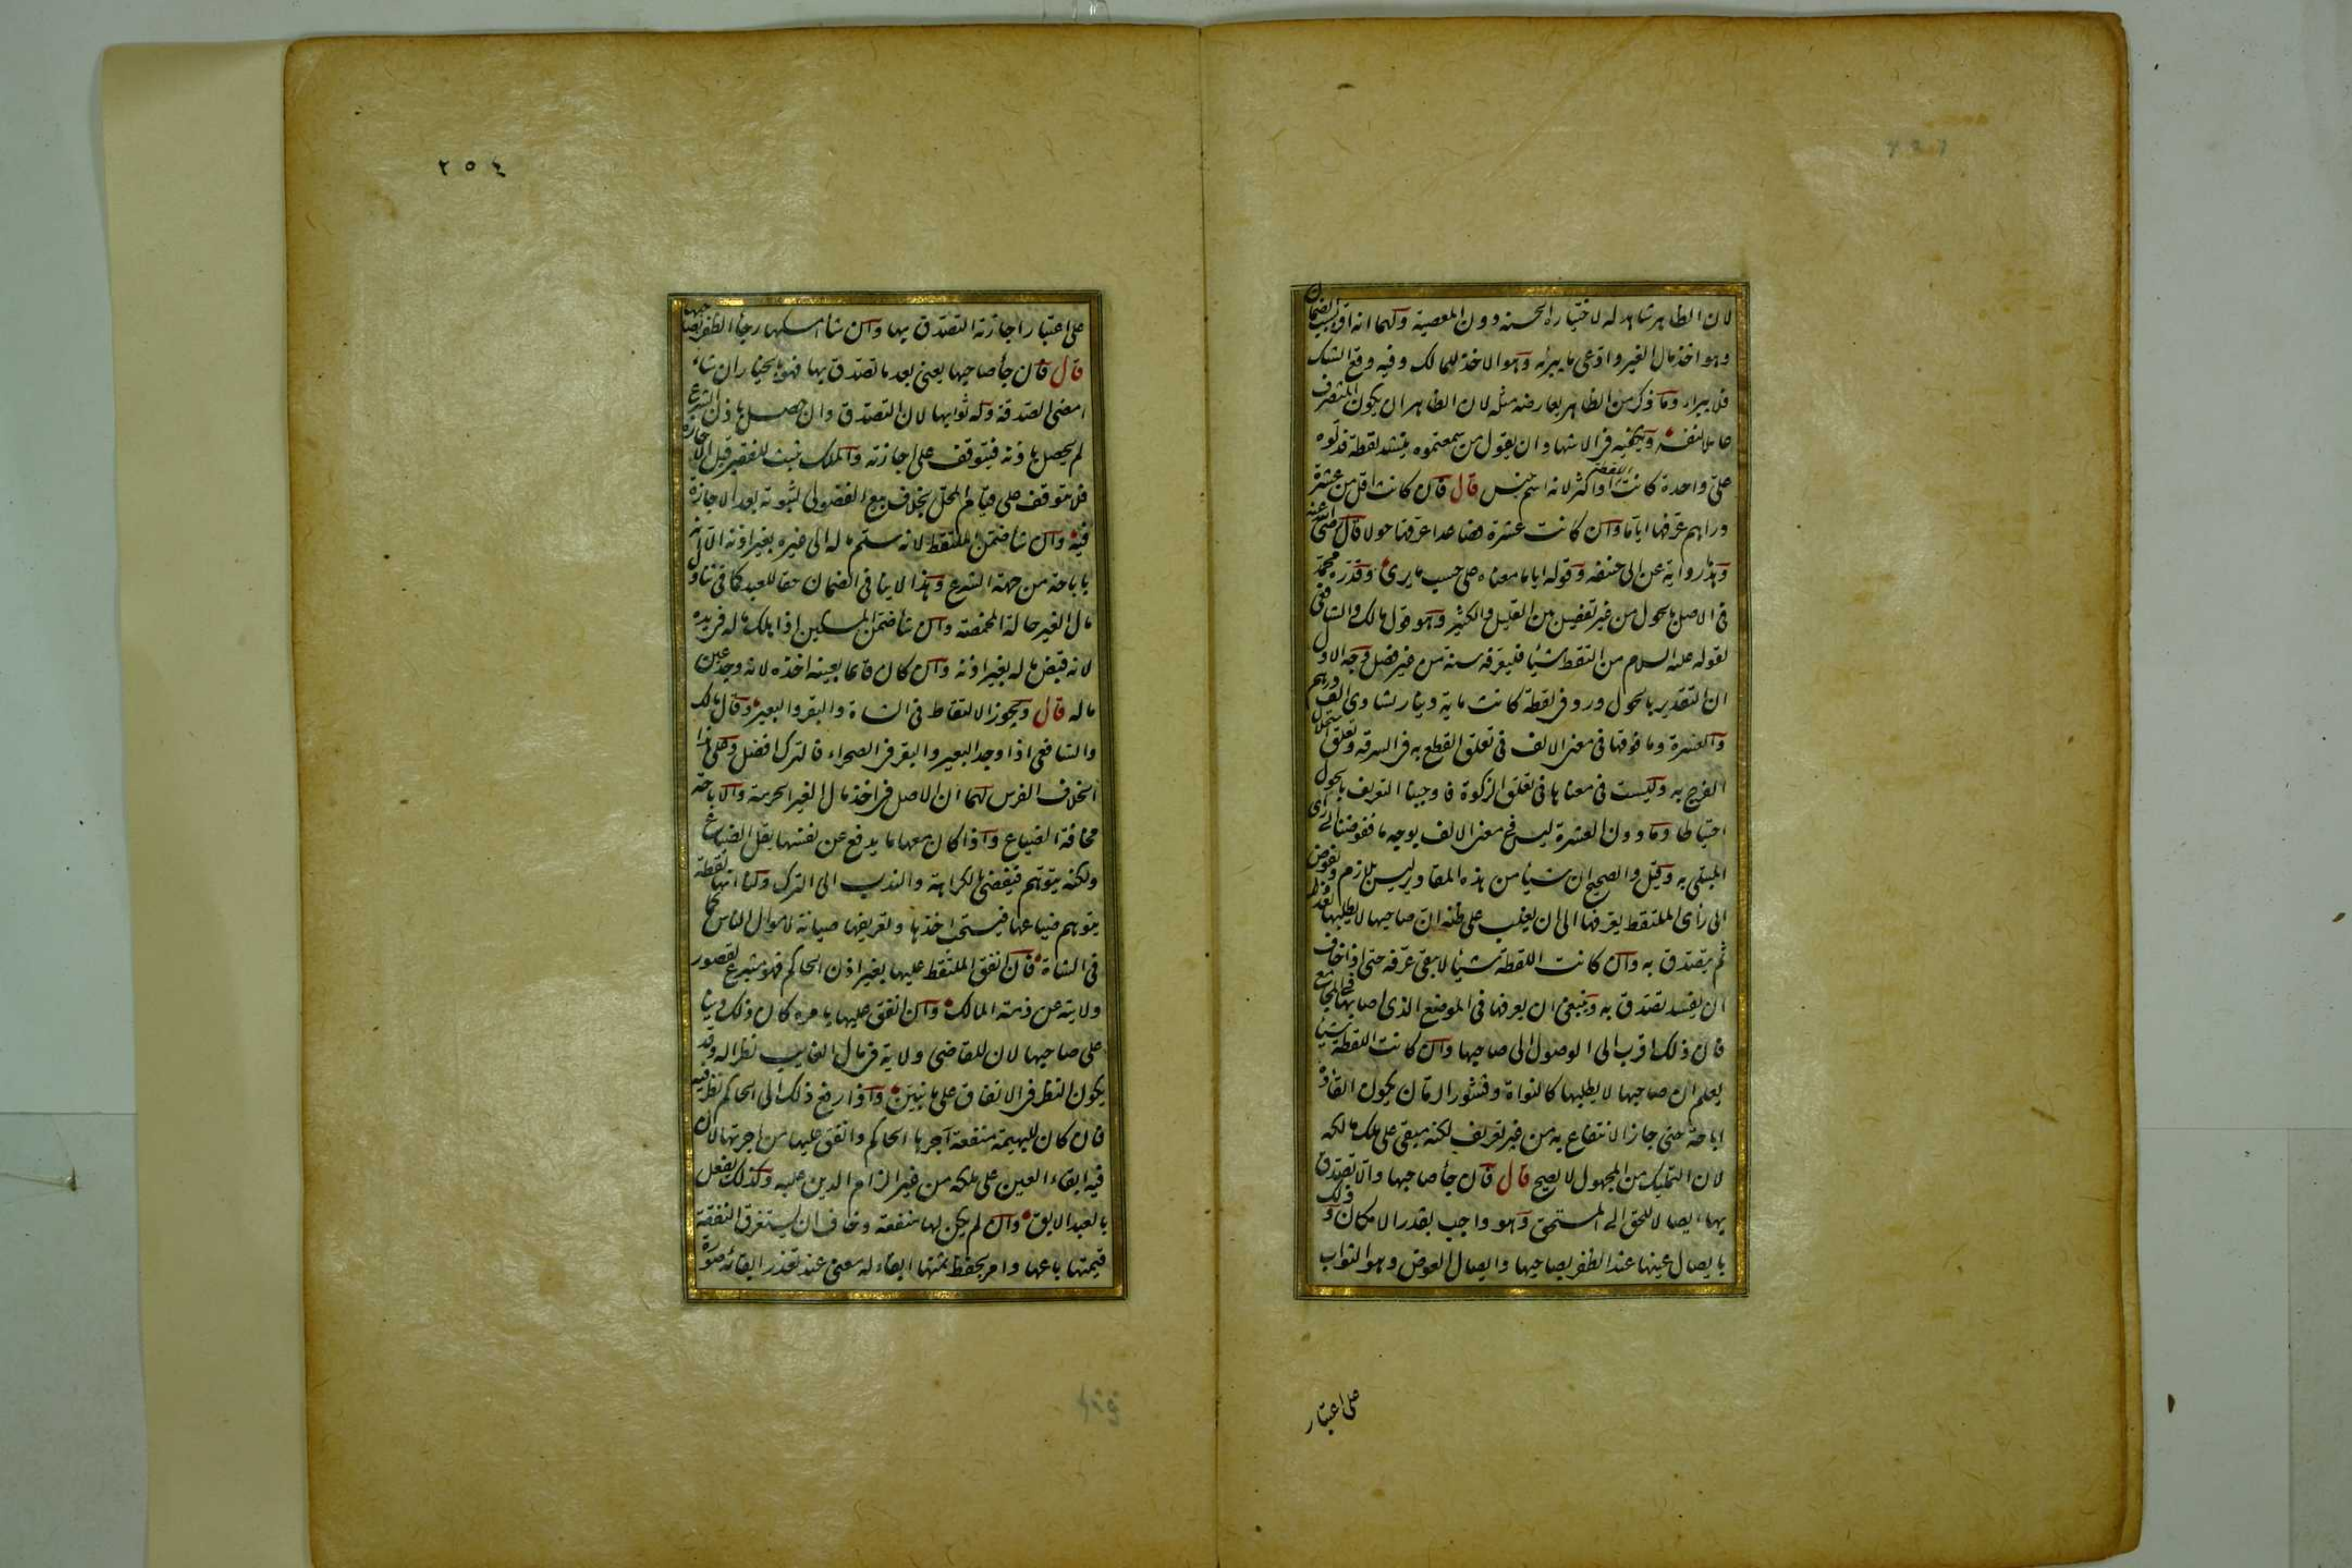 لان الظاهر شاهد له لاختياره الحسنة دون المعصية ولهما انه اقر بسبب الضمان
وهو اخذ مال الغير وادعى ما يبرئه وهو الاخذ للمالك وفيه وقع الشك
فلا يبراء وما ذكر من الظاهر يعارضه مثله لان الظاهر ان يكون المتصرف
عاملا لنفسه ويكفيه فى الاشهاد ان يقول من سمعتموه ينشد لقطة فدلوه
على واحدة كانت اللقطة او اكثر لانه اسم جنس قال فان كانت اقل من عشرة
دراهم عرفها اياما وان كانت عشرة فصاعدا عرفها حولا قال رضى الله عنه
وهذا رواية عن ابى حنيفه وقوله اياما معناه على حسب ما يرى وقدره محمد
فى الاصل بالحول من غير تفصيل بين القليل والكثير وهو قول مالك والشافعى
لقوله عليه السلام من التقط شيئا فليعرفه سنة من غير فصل وجه الاول
ان التقدير بالحول ورد فى لقطة كانت ماية دينار تساوى الف درهم
والعشرة وما فوقها فى معنى الالف فى تعلق القطع به فى السرقه وتعلق استحلال
الفرج به وليست فى معناها فى تعلق الزكوة فاوجبنا التعريف بالحول
احتياطا وما دون العشرة ليس فى معنى الالف بوجه ما ففوضنا الى راى
المبتلى به وقيل والصحيح ان شيئا من هذه المقادير ليس بلازم ويفوض
الى رأى الملتقط يعرفها الى ان يغلب على ظنه ان صاحبها لا يطلبها بعد ذلك
ثم يتصدق به وان كانت اللقطة شيئا لا يبقى عرفه حتى اذا خاف
ان يفسد تصدق به وينبغى ان يعرفها فى الموضع الذى اصابها وفى المجامع
فان ذلك اقرب الى الوصول الى صاحبها وان كانت اللقطة شيئا
يعلم ان صاحبها لا يطلبها كالنواة وقشور الرمان يكون القاؤه
اباحة حتى جاز الانتفاع به من غير تعريف لكنه مبقى على ملك مالكه
لان التمليك من المجهول لا يصح قال فان جأ صاحبها والا تصدق
بها ايصالا للحق الى المستحق وهو واجب بقدر الامكان وذلك
بايصال عينها عند الظفر بصاحبها وايصال العوض وهو الثواب
على اعتبار
٢٥٤
على اعتبار اجازته التصدق بها وان شأ امسكها رجأ الظفر بصاحبها
قال فان جأ صاحبها يعنى بعد ما تصدق بها فهو بالخيار ان شاء
امضى الصدقة وله ثوابها لان التصدق وان حصل باذن الشرع
لم يحصل باذنه فيتوقف على اجازته والملك يثبت للفقير قبل الاجازة
فلا يتوقف على قيام المحل بخلاف بيع الفضولى لثبوته بعد الاجازة
فيه وان شأ ضمن الملتقط لانه سلم ماله الى غيره بغير اذنه الا انه
باباحة من جهة الشرع وهذا لا ينافى الضمان حقا للعبد كما فى تناول
مال الغير حالة المخمصة وان شأ ضمن المسكين اذا هلك ماله فى يده
لانه قبض ماله بغير اذنه وان كان قائما بعينه اخذه لانه وجد عين
ماله قال ويجوز الالتقاط فى الشاة والبقر والبعير وقال مالك
والشافعى اذا وجد البعير والبقر فى الصحراء فالترك افضل وعلى هذا
الخلاف الفرس لهما ان الاصل فى اخذ مال الغير الحرمة والاباحة
مخافة الضياع واذا كان معها ما يدفع عن نفسها يقل الضياع
ولكنه يتوهم فيقضى بالكراهة والندب الى الترك ولنا انها لقطة
يتوهم ضياعها فيستحب اخذها وتعريفها صيانة لاموال الناس كما
فى الشاة فان انفق الملتقط عليها بغير اذن الحاكم فهو متبرع لقصور
ولايته عن ذمة المالك وان انفق عليها بامره كان ذلك دينا
على صاحبها لان للقاضى ولاية فى مال الغايب نظرا له وقد
يكون النظر فى الانفاق على ما نبين واذا رفع ذلك الى الحاكم نظر فيه
فان كان للبهيمة منفعة آجرها الحاكم وانفق عليها من اجرتها لان
فيه ابقاء العين على ملكه من غير الزام الدين عليه وكذلك يفعل
بالعبد الابق وان لم يكن لها منفعة وخاف ان يستغرق النفقة
قيمتها باعها وامر بحفظ ثمنها ابقاء له معنى عند تعذر ابقائه صورة